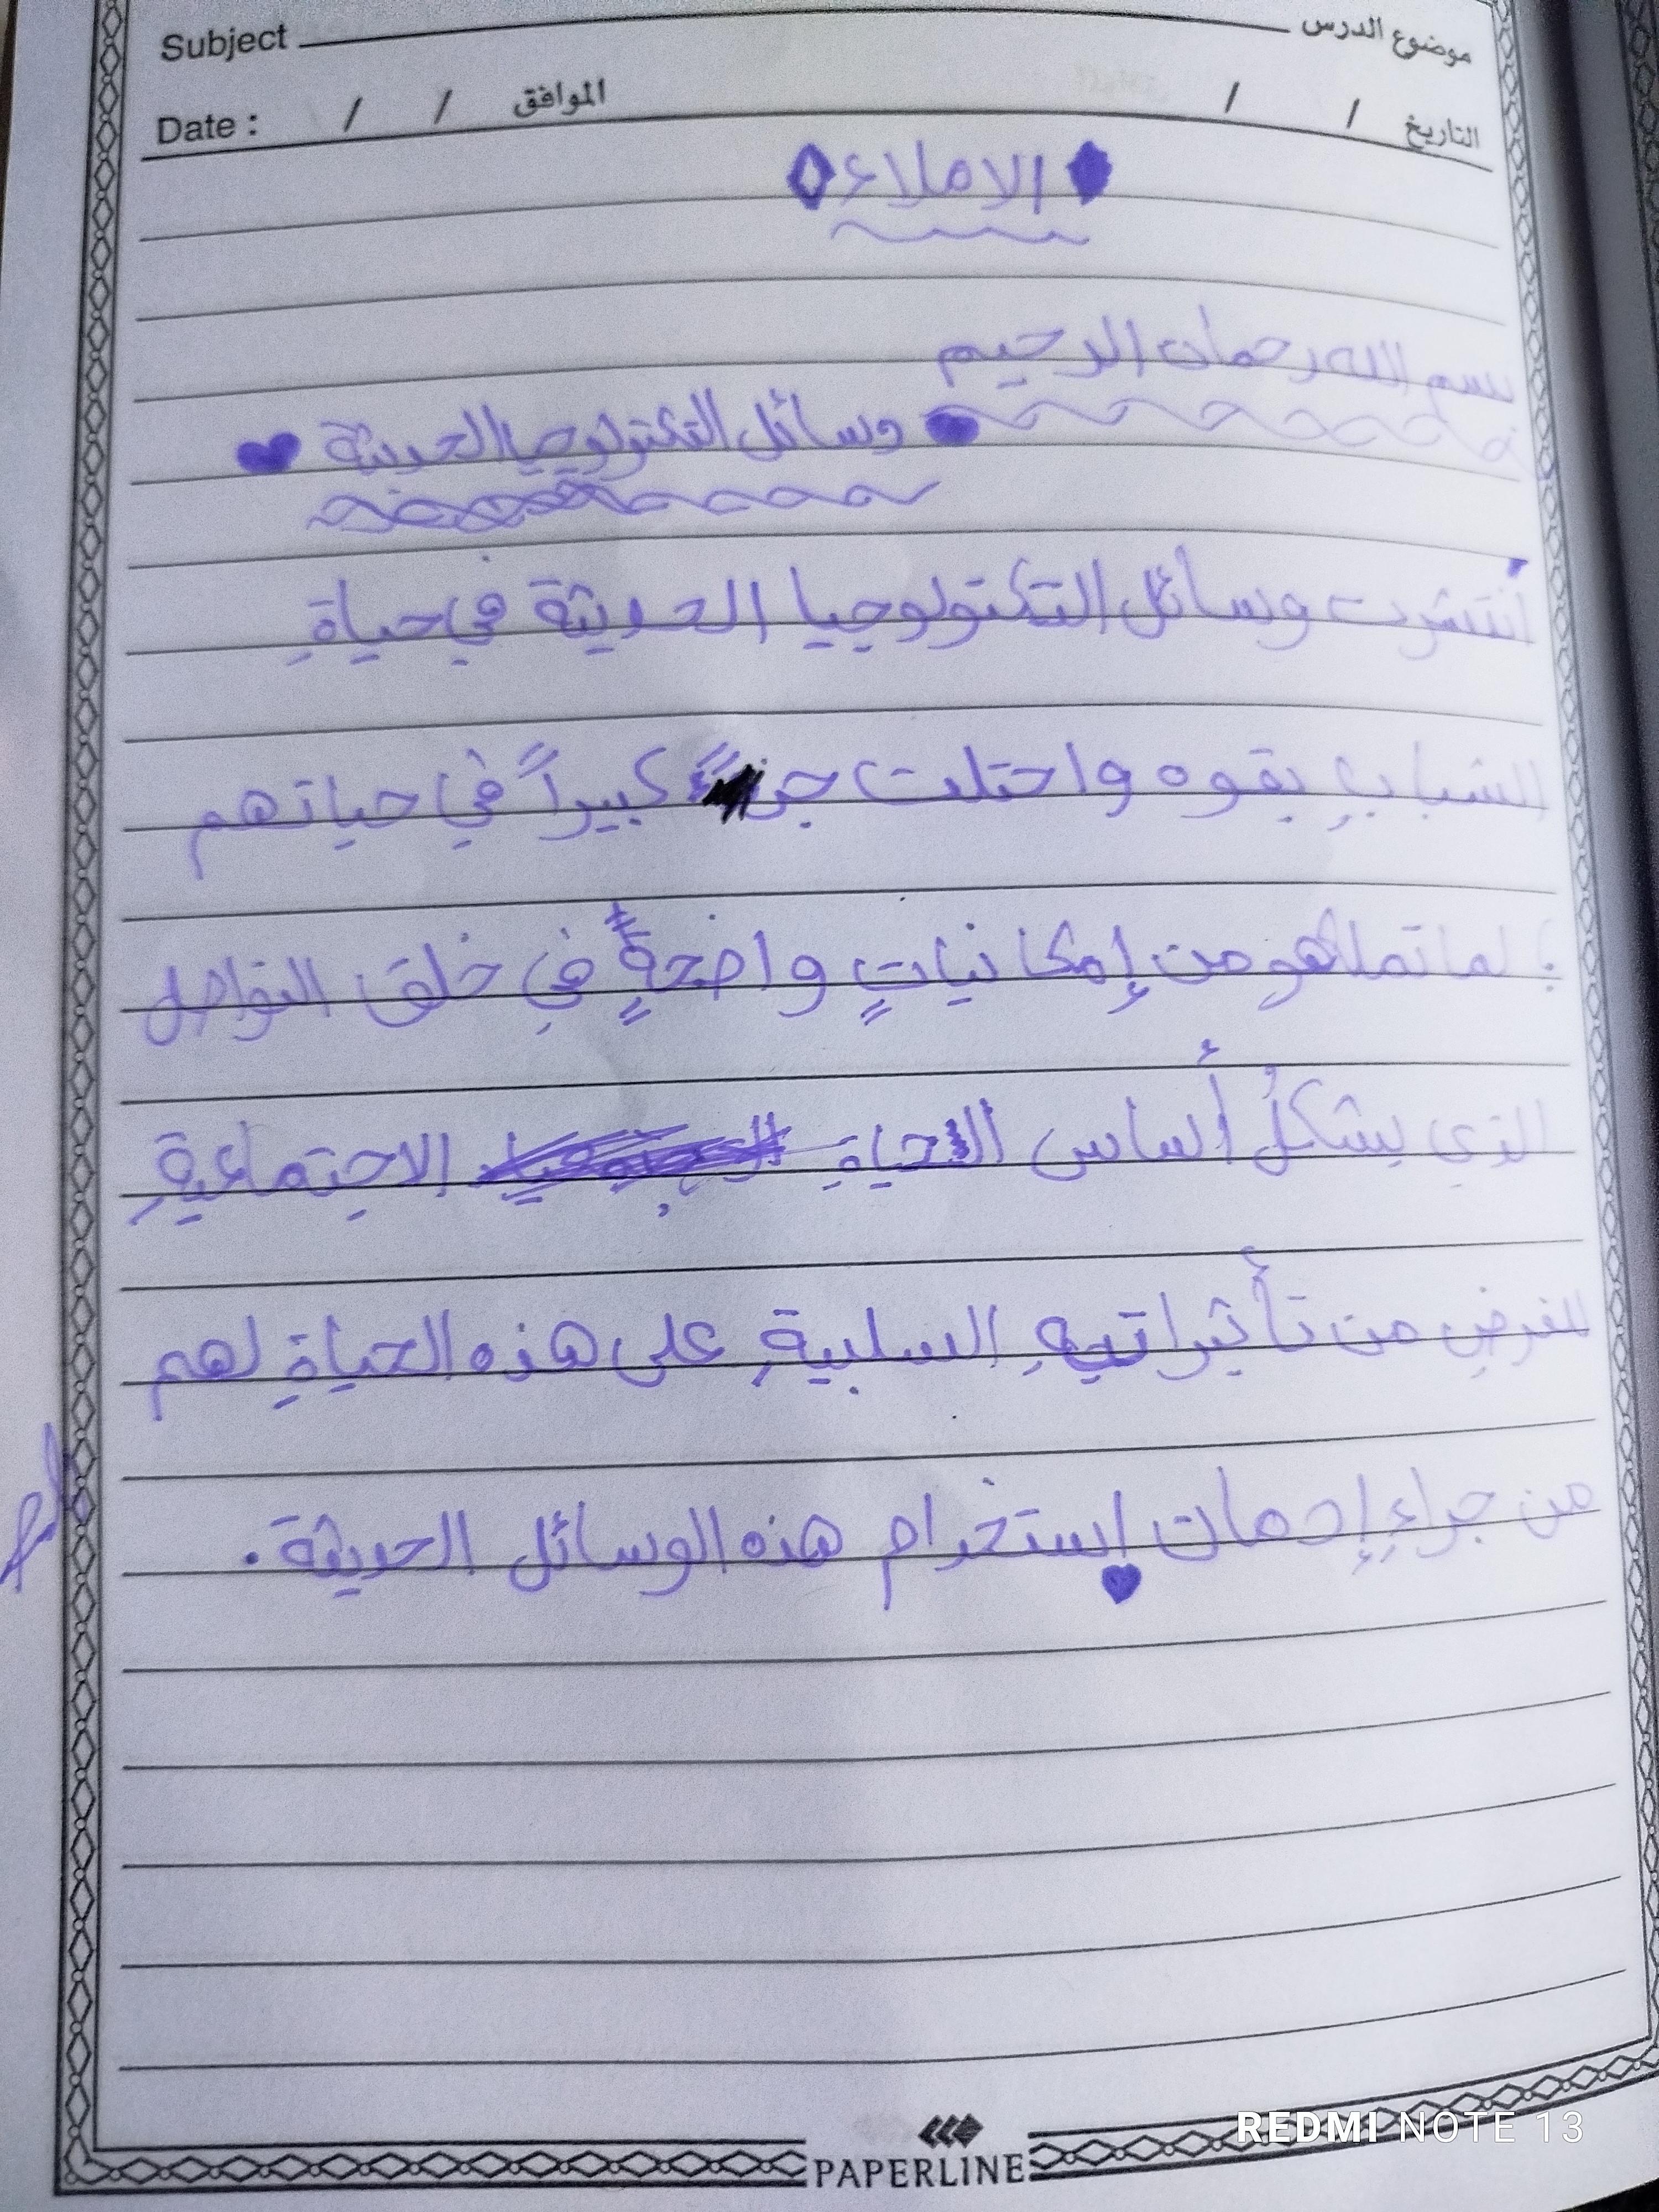 Subject موضوع الدرس
Date : / / الموافق / / التاريخ
الاملاء
بسم الله رحمان الرحيم
وسائل التكنولوجيا الحديثة
انتشرت وسائل التكنولوجيا الحديثة في حياةِ
الشبابِ بقوه واحتلت جزءً كبيراً في حياتهم
؛ لما تملكهو من إمكانياتٍ واضحةٍ في خلق التواصل
الذي يشكلُ أساس الحياةِ الاجتماعيةِ
للفرضِ من تأثيراتيهِ السلبيةِ على هذه الحياةِ لهم
من جراءِ إدمان إستخدام هذه الوسائل الحديثة.
PAPERLINE
REDMI NOTE 13